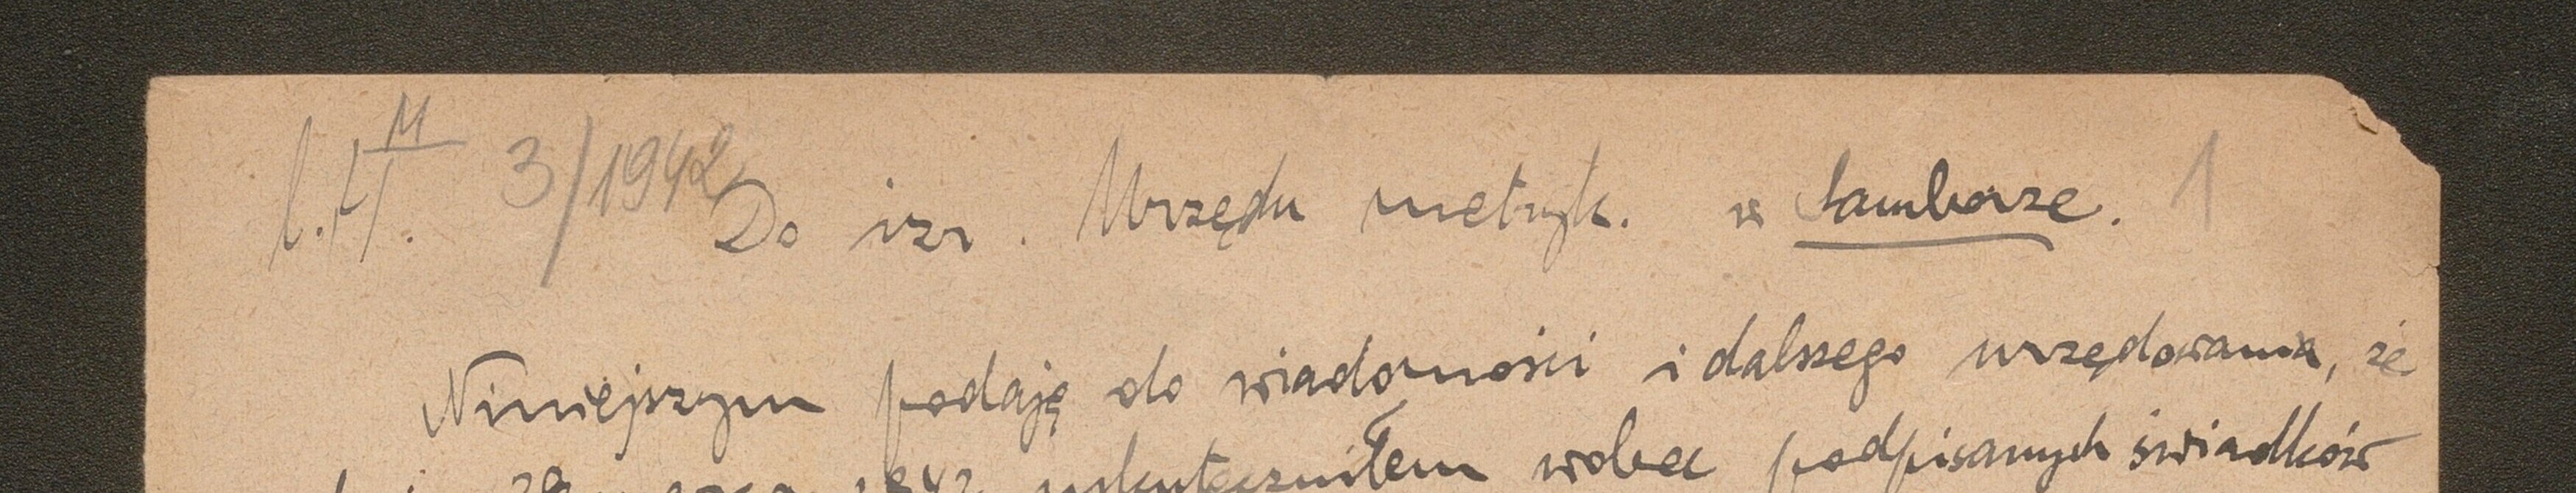 M 3/1942 1
Do izr. Urzędu metryk. w Samborze.
Niniejszym podaję do wiadomości i dalszego urzędowania, że
1942 uskuteczniłem wobec podpisanych świadków